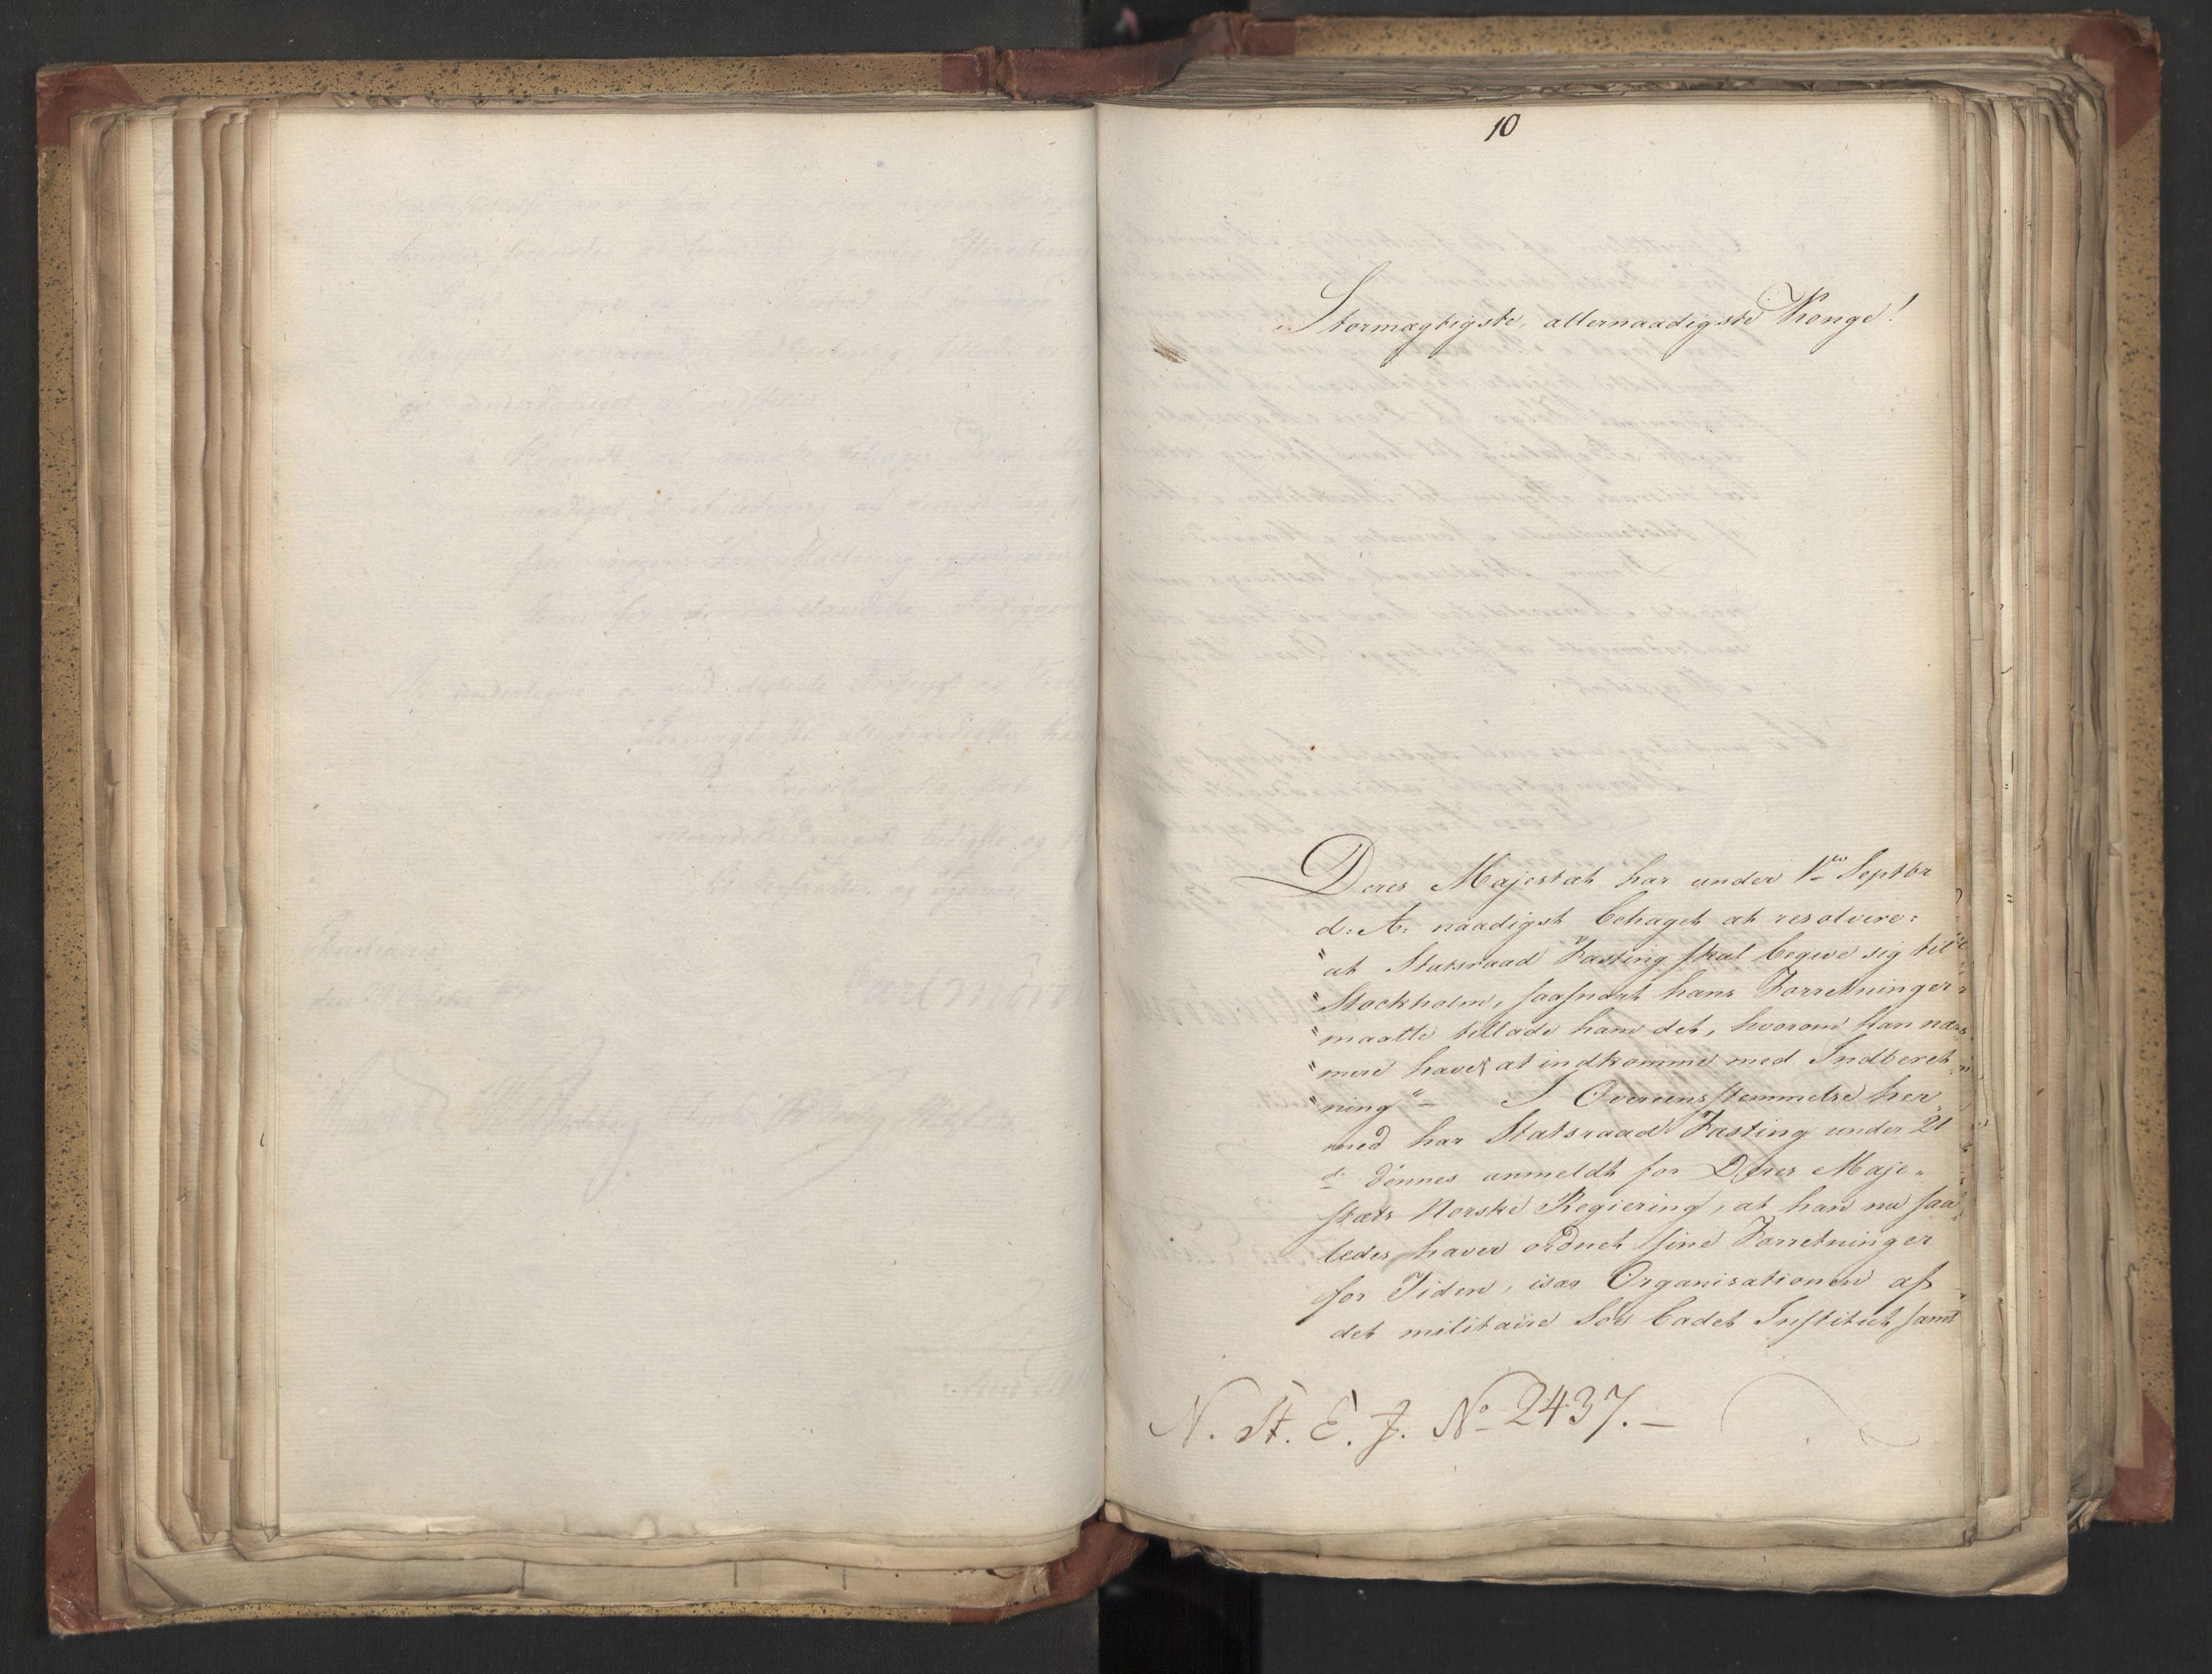 10
Stormægtigste, allernaadigste Konge!
Deres Majestæt har under 1ste Septbr
d: A: naadigst behaget at resolvere:
"at Statsraad Fasting skal begive sig til
"Stockholm, saasnart hans Forretninger
"maatte tillade ham det, hvorom han nær=
"mere haver at indkomme med Indberet=
"ning" – I Overeensstemmelse her=
med har Statsraad Fasting under 21
ds Dennes anmeldt for Deres Maje=
stæts Norske Regiering, at han nu saa=
ledes haver ordnet sine Forretninger
for Tiden, især Organisationen af
det militaire Søe Cadet Institut samt
N. St. E. J. No 2437. –